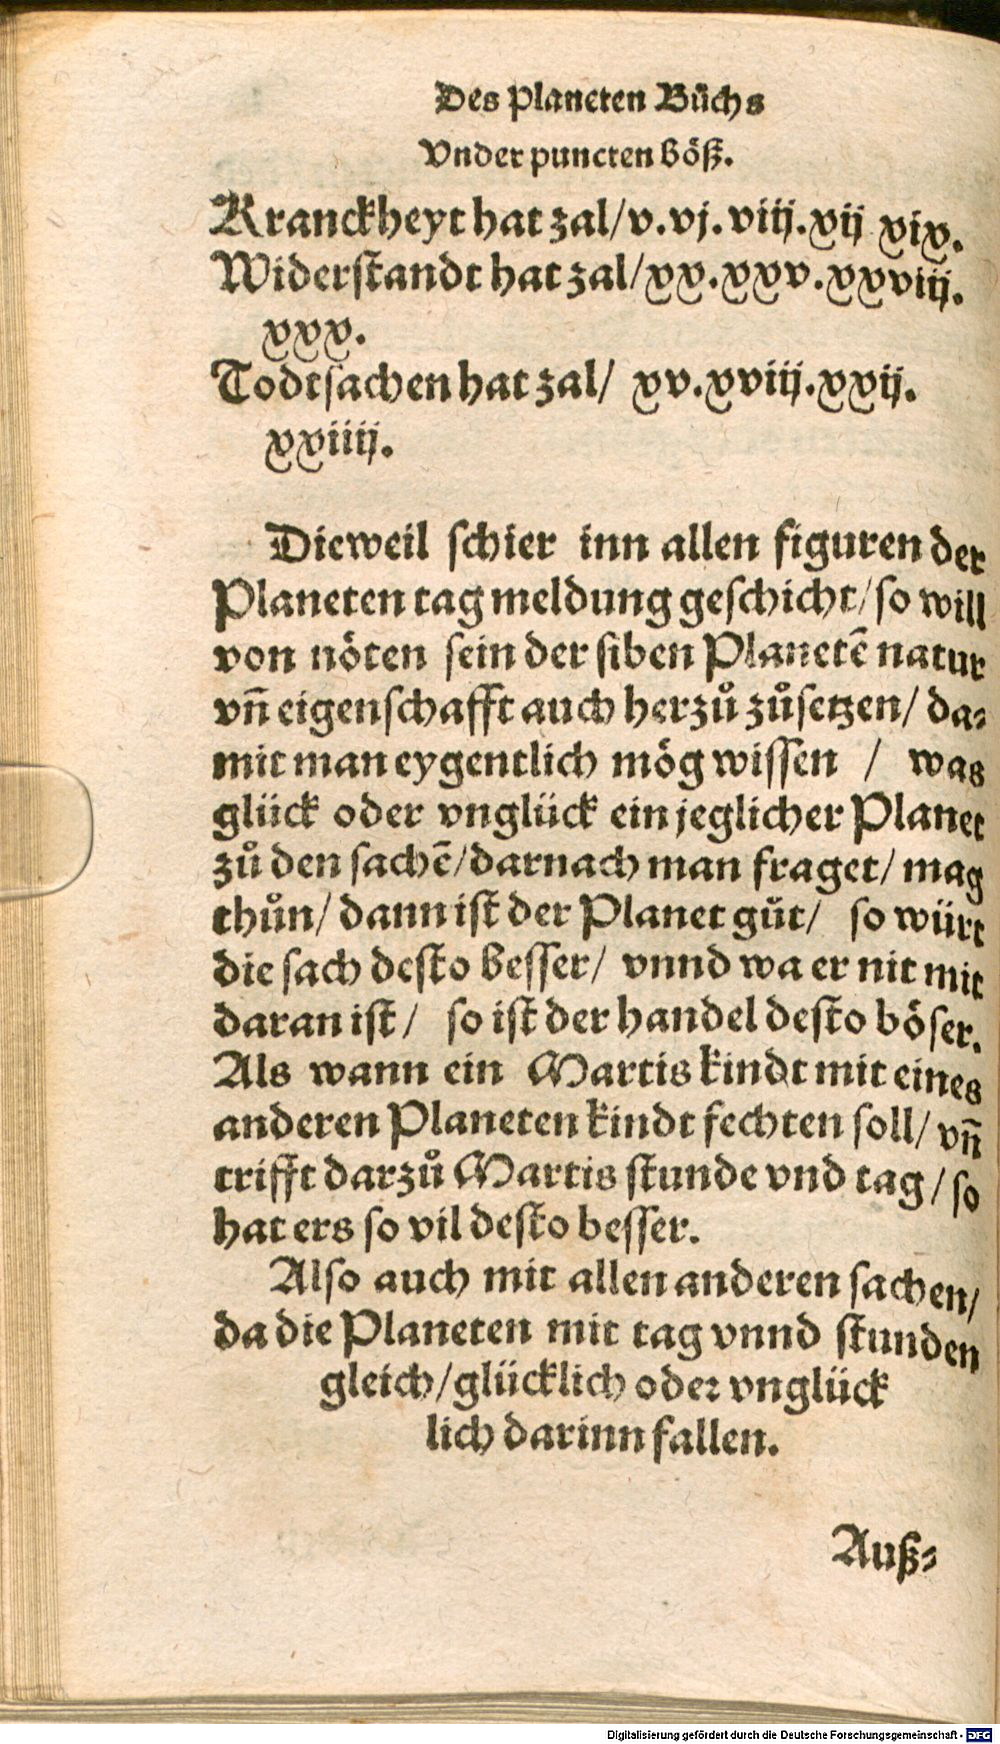 Des Planeten Bůchs
Vnder puncten böß.
Kranckheyt hat zal/v.vj.viij.xij xix.
Widerstandt hat zal/xx.xxv.xxviij.
xxx.
Todtsachen hat zal/ xv.xviij.xxij.
xxiiij.
Dieweil schier inn allen figuren der
Planeten tag meldung geschicht/so will
von nöten sein der siben Planetē natur
vñ eigenschafft auch herzů zůsetzen/ da⸗
mit man eygentlich mög wissen / was
glück oder vnglück ein jeglicher Planet
zů den sachē/darnach man fraget/ mag
thůn/ dann ist der Planet gůt/ so würt
die sach desto besser/ vnnd wa er nit mit
daran ist/ so ist der handel desto böser.
Als wann ein Martis kindt mit eines
anderen Planeten kindt fechten soll/ vñ
trifft darzů Martis stunde vnd tag/ so
hat ers so vil desto besser.
Also auch mit allen anderen sachen/
da die Planeten mit tag vnnd stunden
gleich/glücklich oder vnglück
lich darinn fallen.
Auß⸗
Digitalisierung gefördert durch die Deutsche Forschungsgemeinschaft - DFG